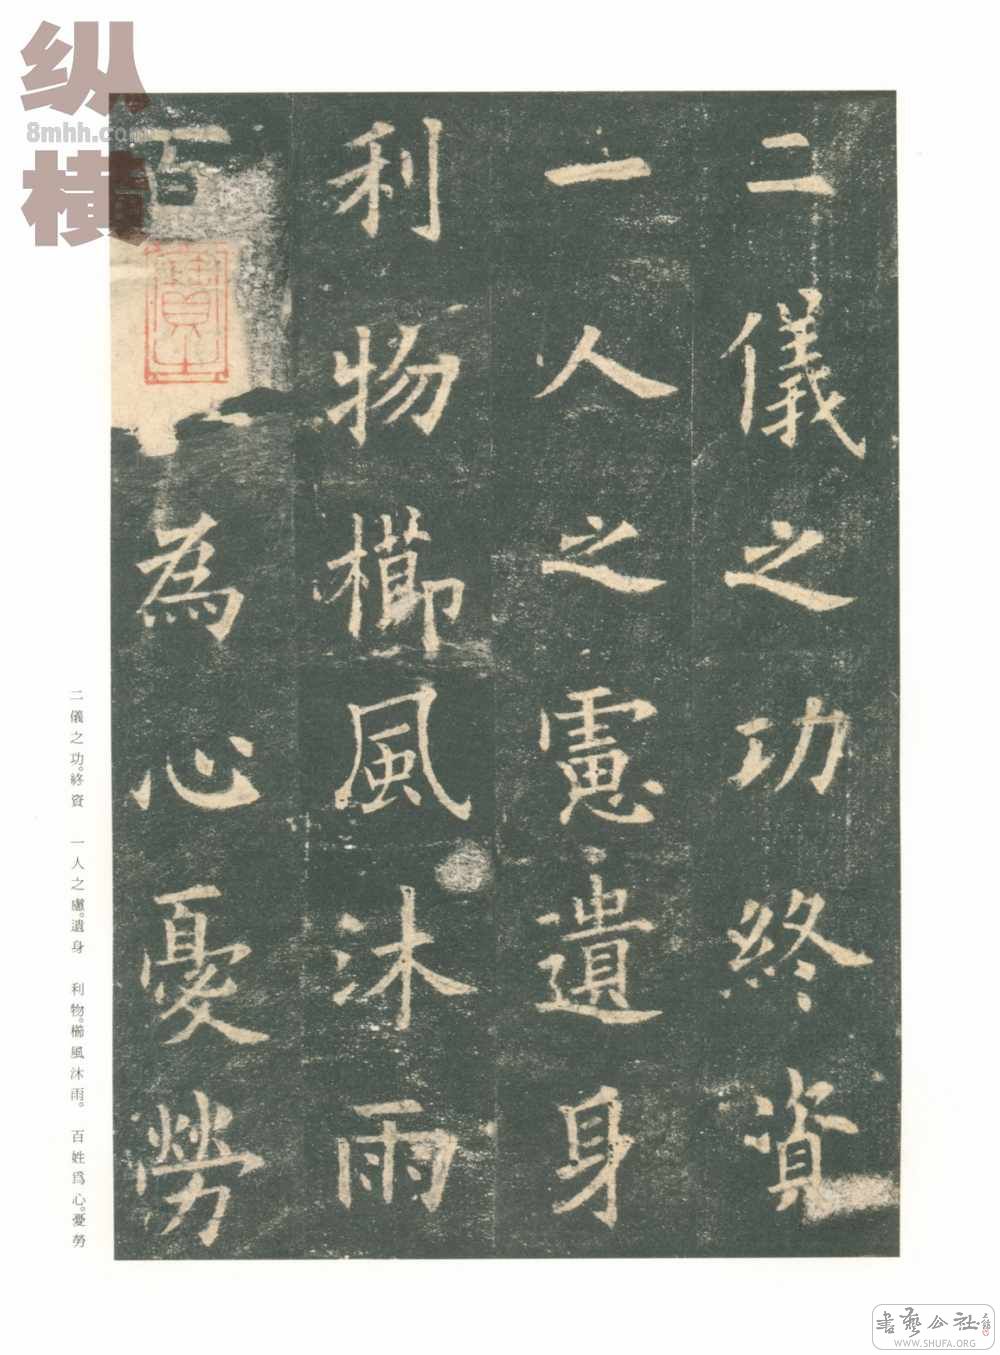 二儀之功終資
一人之慮遺身
利物櫛風沐雨
百
為心憂勞
二儀之功。終資　一人之慮。遺身　利物。櫛風沐雨。　百姓爲心。憂勞
纵横
8mhh.com
書藝公社
WWW.SHUFA.ORG